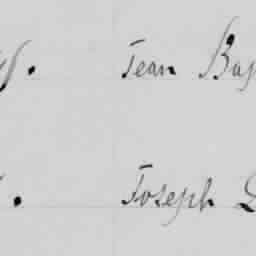 Jean Bap
Joseph